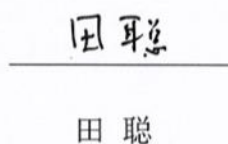 田聪
田 聪